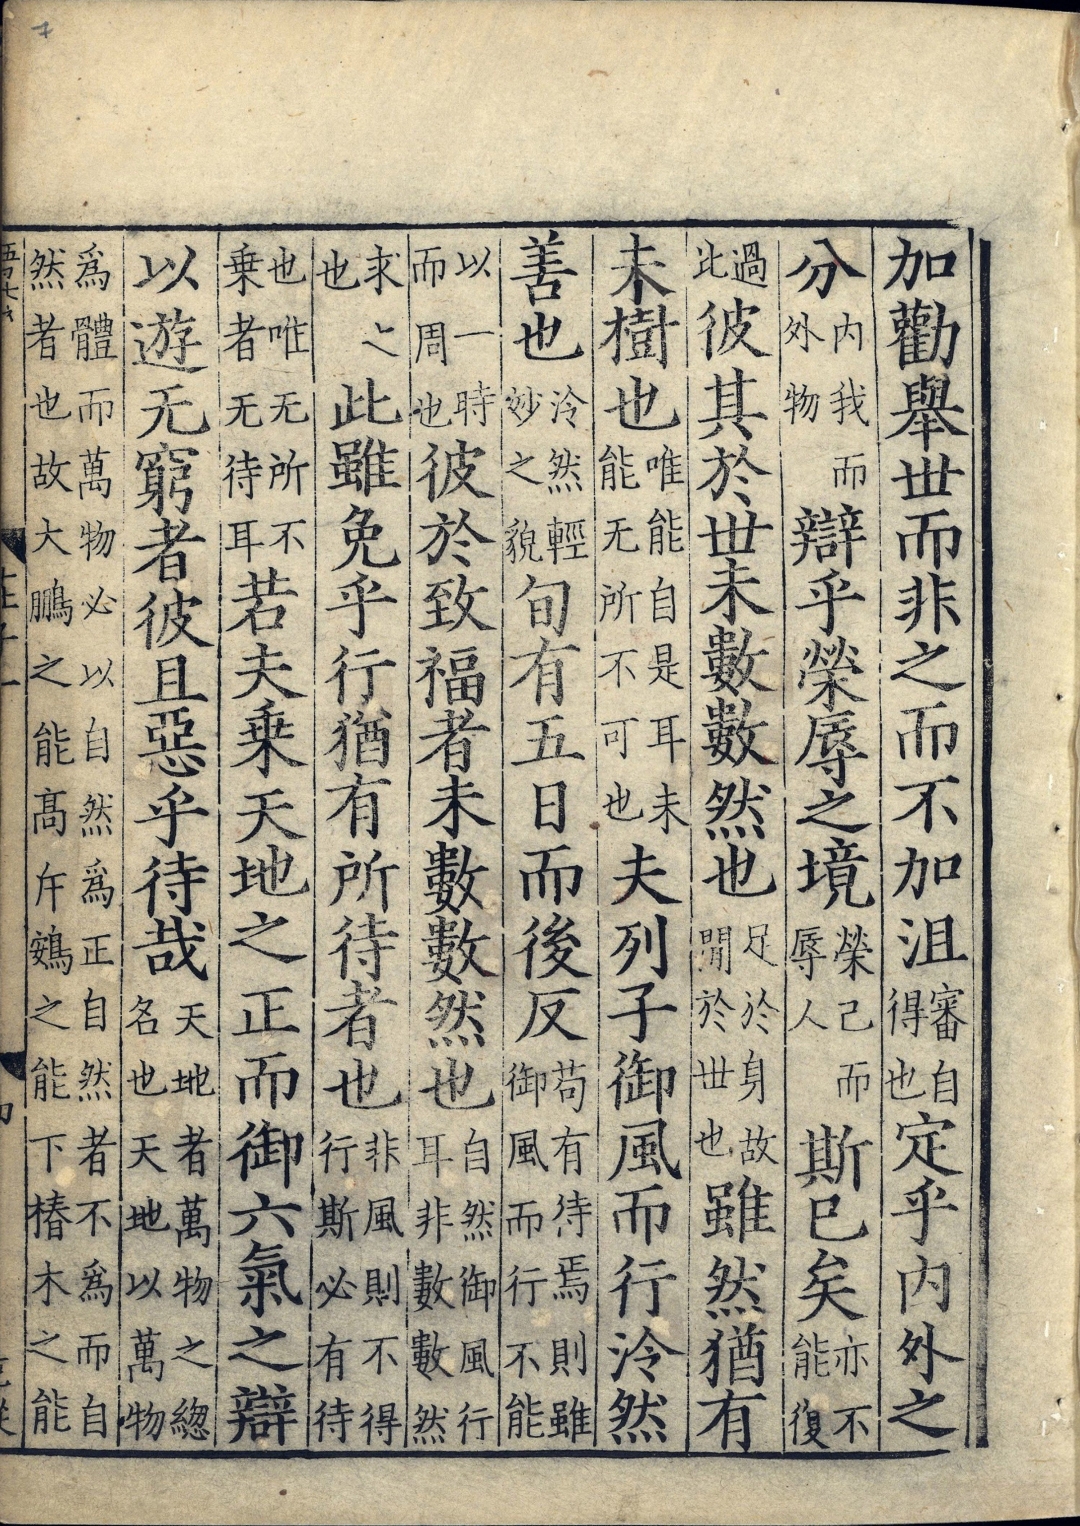 加勸舉世而非之而不加沮審自得也定乎內外之
分內我而外物辯乎榮辱之境榮己而辱人斯已矣亦不能復
過比彼其於世未數數然也足於身故閒於世也雖然猶有
未樹也唯能自是耳未能无所不可也夫列子御風而行泠然
善也泠然輕妙之貌旬有五日而後反苟有待焉則雖御風而行不能
以一時而周也彼於致福者未數數然也自然御風行耳非數數然
求〻也此雖免乎行猶有所待者也非風則不得行斯必有待
也唯无所不乗者无待耳若夫乗天地之正而御六氣之辯
以遊无窮者彼且惡乎待哉天地者萬物之緫名也天地以萬物
爲體而萬物必以自然爲正自然者不爲而自然者也故大鵬之能髙斥鴳之能下椿木之能